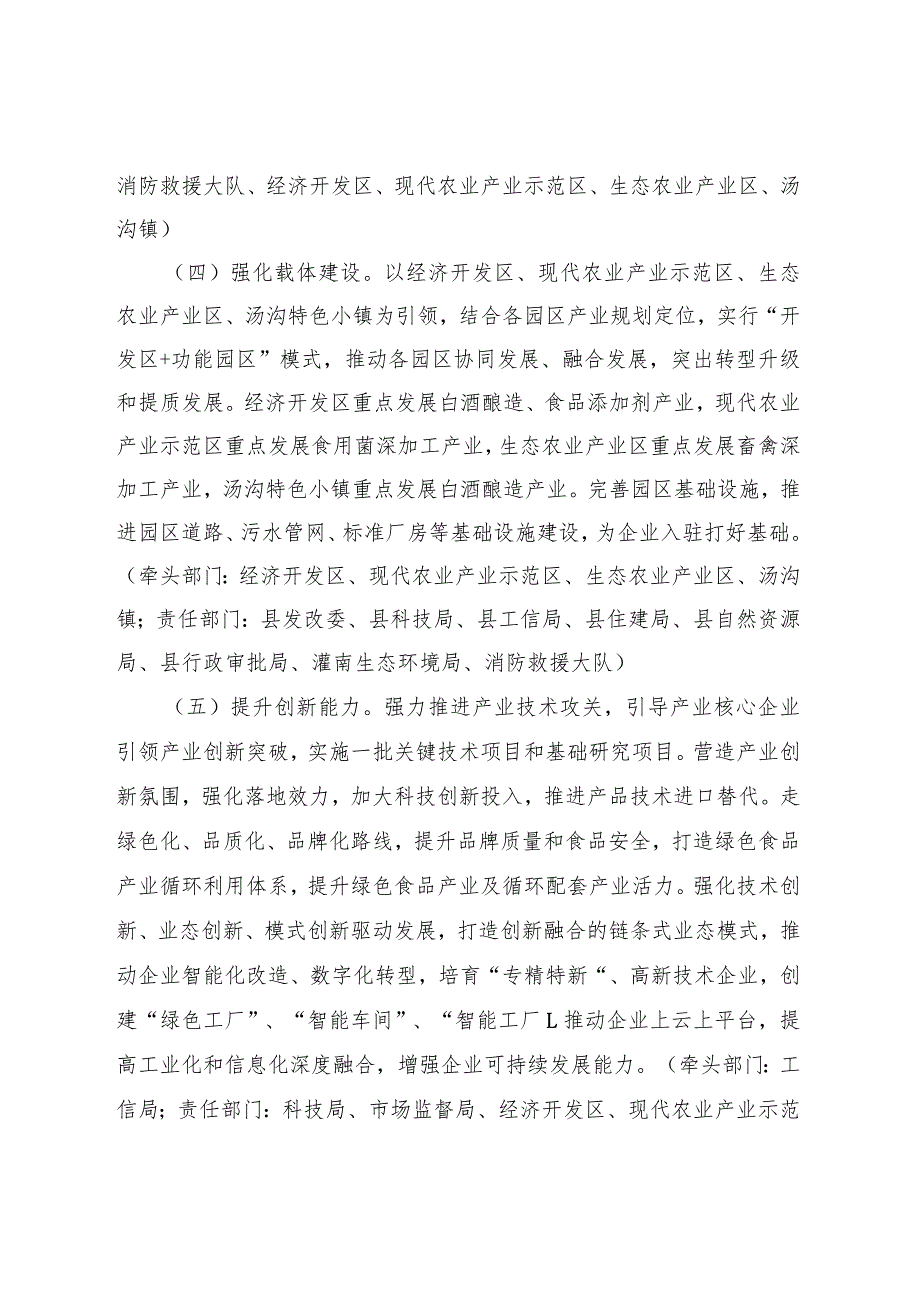 消防救援大队、经济开发区、现代农业产业示范区、生态农业产业区、汤
沟镇）
（四）强化载体建设。以经济开发区、现代农业产业示范区、生态
农业产业区、汤沟特色小镇为引领，结合各园区产业规划定位，实行“开
发区+功能园区”模式，推动各园区协同发展、融合发展，突出转型升级
和提质发展。经济开发区重点发展白酒酿造、食品添加剂产业，现代农业
产业示范区重点发展食用菌深加工产业，生态农业产业区重点发展畜禽深
加工产业，汤沟特色小镇重点发展白酒酿造产业。完善园区基础设施，推
进园区道路、污水管网、标准厂房等基础设施建设，为企业入驻打好基础。
（牵头部门：经济开发区、现代农业产业示范区、生态农业产业区、汤沟
镇；责任部门：县发改委、县科技局、县工信局、县住建局、县自然资源
局、县行政审批局、灌南生态环境局、消防救援大队）
（五）提升创新能力。强力推进产业技术攻关，引导产业核心企业
引领产业创新突破，实施一批关键技术项目和基础研究项目。营造产业创
新氛围，强化落地效力，加大科技创新投入，推进产品技术进口替代。走
绿色化、品质化、品牌化路线，提升品牌质量和食品安全，打造绿色食品
产业循环利用体系，提升绿色食品产业及循环配套产业活力。强化技术创
新、业态创新、模式创新驱动发展，打造创新融合的链条式业态模式，推
动企业智能化改造、数字化转型，培育“专精特新“、高新技术企业，创
建“绿色工厂”、“智能车间”、“智能工厂L推动企业上云上平台，提
高工业化和信息化深度融合，增强企业可持续发展能力。（牵头部门：工
信局；责任部门：科技局、市场监督局、经济开发区、现代农业产业示范